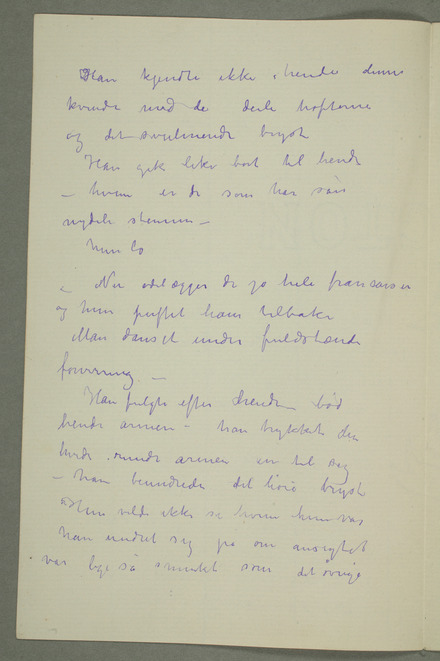 Han kjendte ikke hende denne
kvinde med de deile hofterne
og det svulmende bryst
Han gik like bort til hende
– hvem er de som har sån
nydelig stemme –
Hun lo
– Nu ødelægger de jo hele fransaisen
og hun puffet ham tilbake
Man danset under fuldstændig
forvirring. –
Han fulgte efter hende bød
hende armen – han trykket den
hvide runde armen ind til sig
– han beundrede det hvide bryst
Hun vilde ikke si hvem hun var
han undret sig på om ansigtet
var lige så smukt som det øvrige